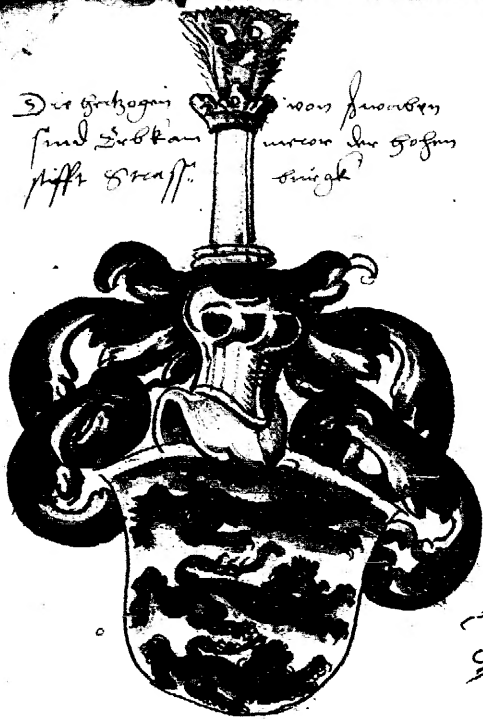 Die Hertzogen von Swaben
sind Erbkammerer der Hohen
stifft Strassburgk